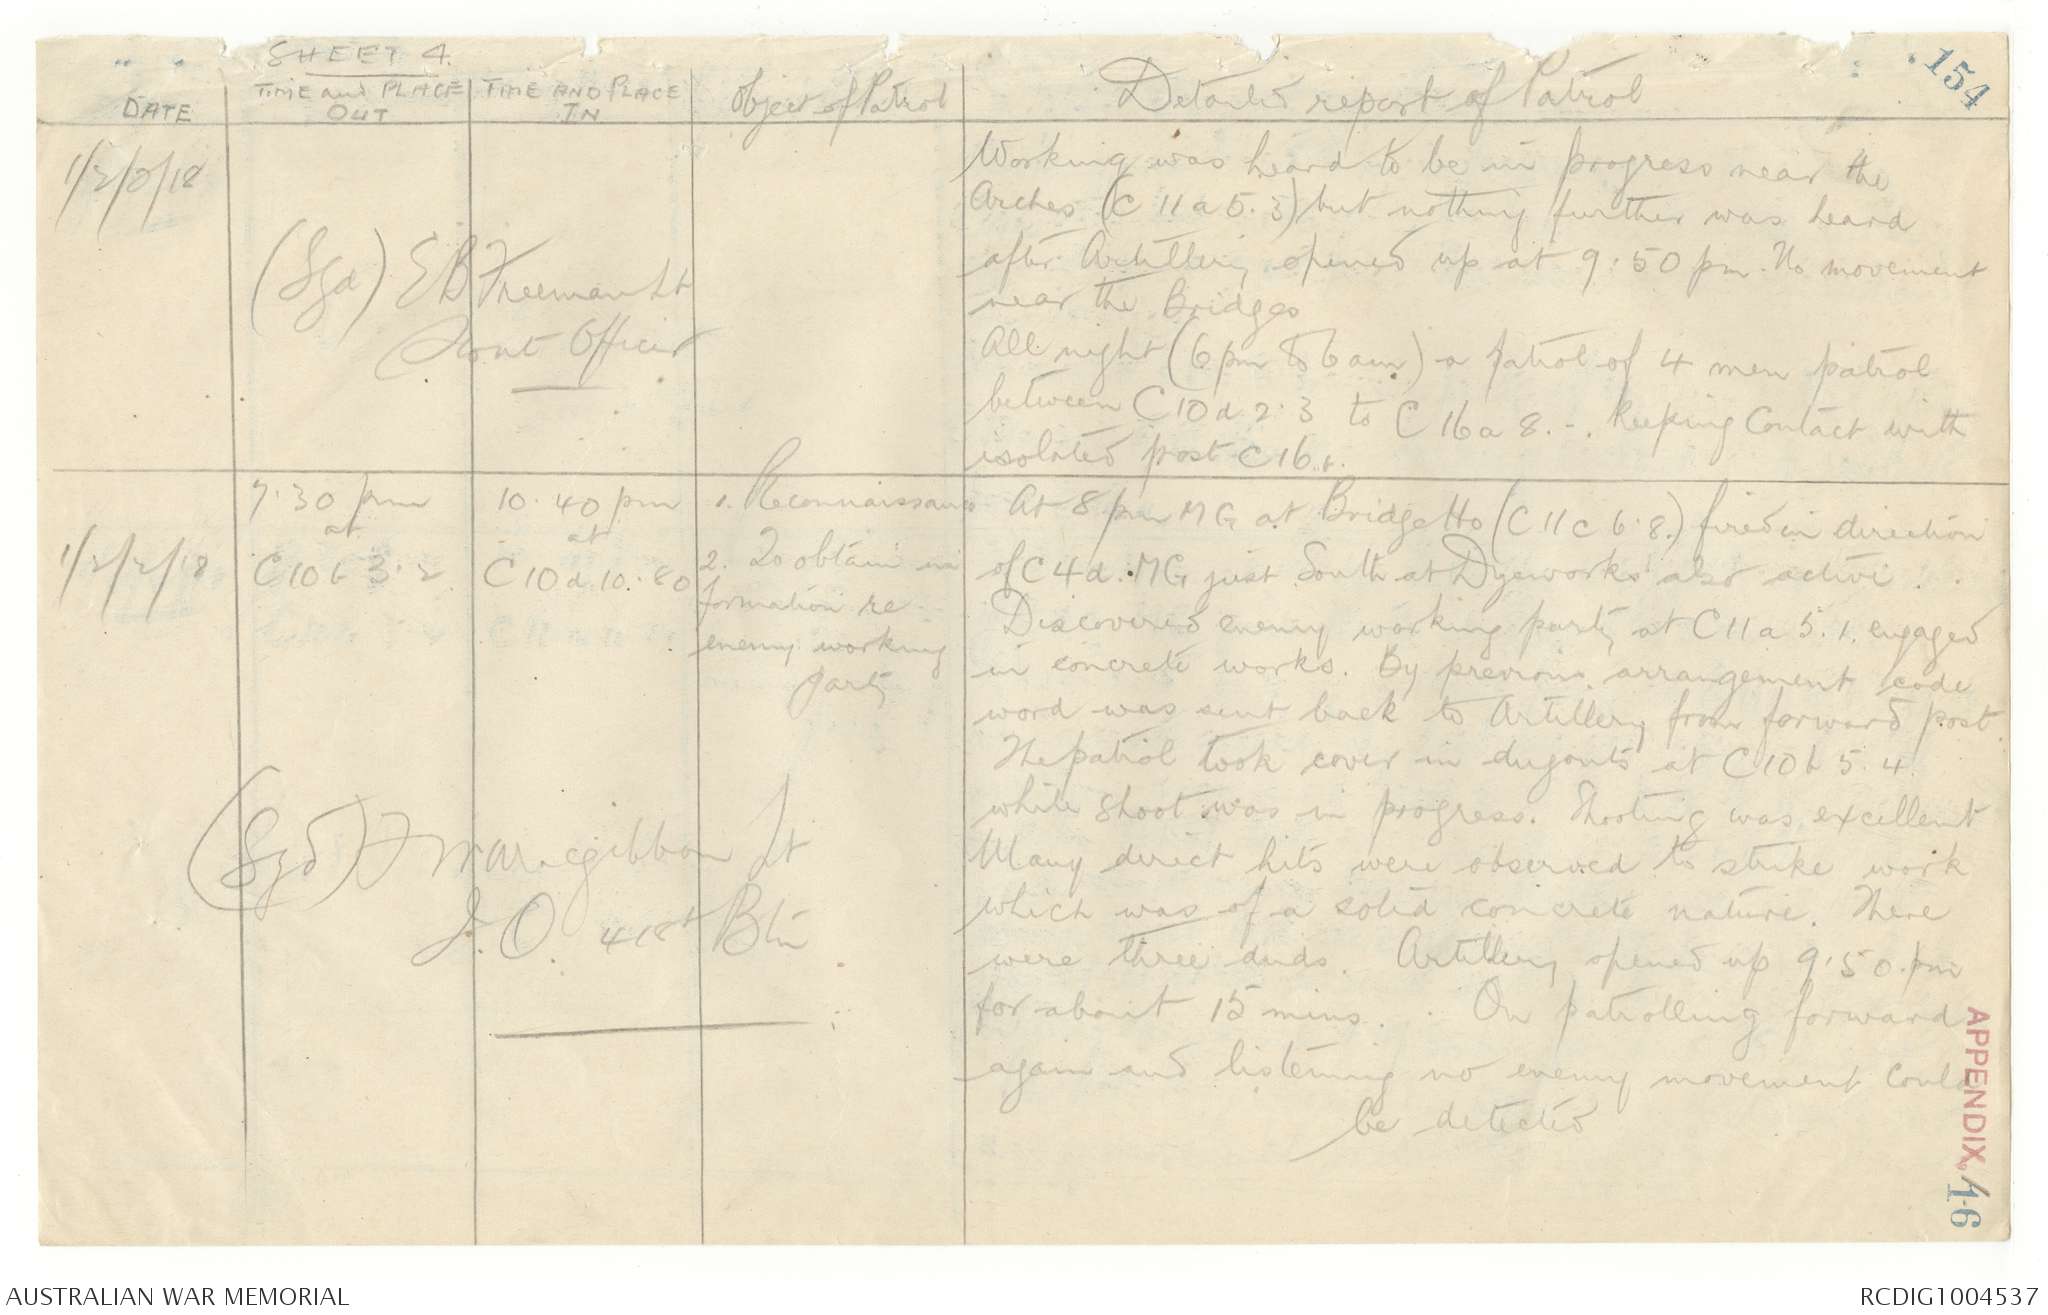 SHEET 4.
154
DATE
TIME and PLACE OUT
TIME AND PLACE IN
Object of Patrol
Detailed report of Patrol
Working was heard to be in progress near the
Arches (C 11 a 5.3) but nothing further was heard
after Artillery opened up at 9.50 pm. No movement
near the Bridges
All night (6 pm to 6 am) a patrol of 4 men patrol
between C10 d 2.3 to C 16 a 8.-. keeping contact with
isolated post C16
(Sgd) E B Freeman Lt
Scout Officer
1/2/2/18
7.30 pm
at
C10 b 3.2
10.40 pm
at
C10 d 10.80
1. Reconnaissance
2. To obtain in
formation re
enemy working
party
At 8 pm MG at Bridge Ho (C 11 c 6.8.) fired in direction
of C 4 d. MG just South at Dyeworks also active.
Discovered enemy working party at C 11 a 5.1. engaged
in concrete works. By previous arrangement code
word was sent back to Artillery from forward post.
The patrol took cover in dugouts at C 10 b 5.4.
while shoot was in progress. Shooting was excellent
Many direct hits were observed to strike work
which was of a solid concrete nature. There
were three duds. Artillery opened up 9.50 pm
for about 15 mins. On patrolling forward
again and listening no enemy movement could
be detected
(Sgd) Macgibbon Lt
I.O. 41st Btn
APPENDIX 16
AUSTRALIAN WAR MEMORIAL
RCDIG1004537